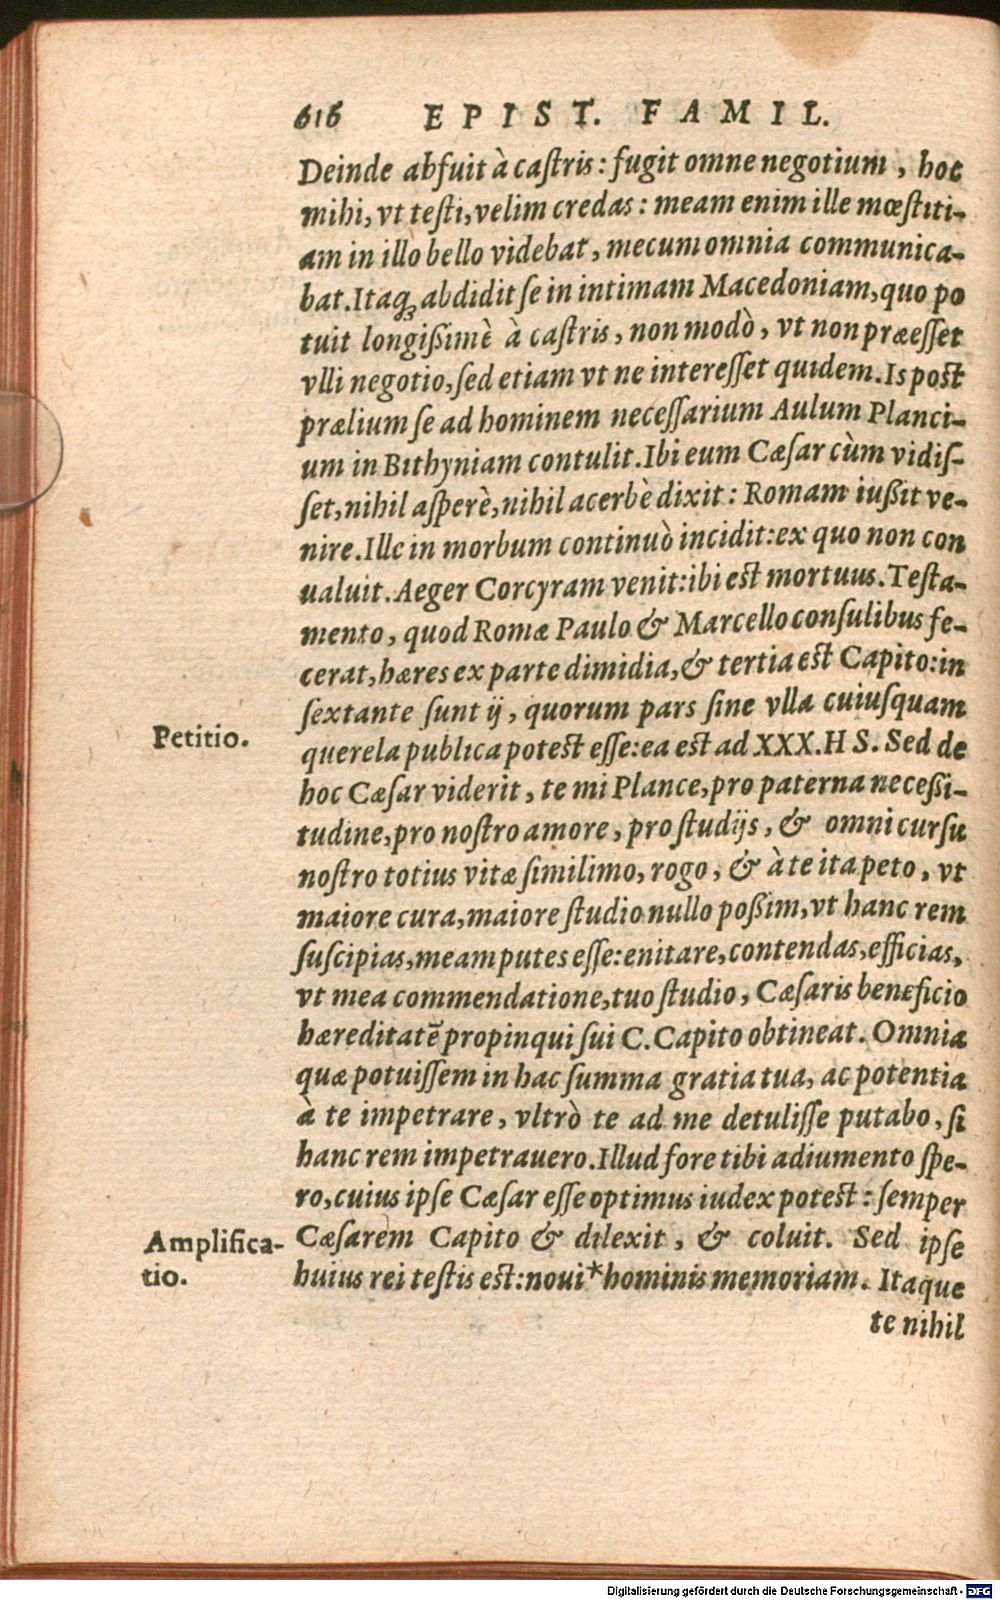 616 EPIST. FAMIL.
Deinde abfuit à caſtris: fugit omne negotium, hoc
mihi, vt teſti, velim credas: meam enim ille mœſtiti-
am in illo bello videbat, mecum omnia communica-
bat. Itaq; abdidit ſe in intimam Macedoniam, quo po
tuit longißimè à caſtris, non modò, vt non præeſſet
vlli negotio, ſed etiam vt ne intereſſet quidem. Is poſt
prælium ſe ad hominem neceſſarium Aulum Planci-
um in Bithyniam contulit. Ibi eum Cæſar cùm vidiſ-
ſet, nihil aſperè, nihil acerbè dixit: Romam iußit ve-
nire. Ille in morbum continuò incidit: ex quo non con
ualuit. Aeger Corcyram venit: ibi eſt mortuus. Teſta-
mento, quod Romæ Paulo & Marcello conſulibus fe-
cerat, hæres ex parte dimidia, & tertia eſt Capito: in
ſextante ſunt ij, quorum pars ſine vlla cuiuſquam
Petitio. querela publica poteſt eſſe: ea eſt ad XXX. H S. Sed de
hoc Cæſar viderit, te mi Plance, pro paterna neceßi-
tudine, pro noſtro amore, pro ſtudijs, & omni curſu
noſtro totius vitæ ſimilimo, rogo, & à te ita peto, vt
maiore cura, maiore ſtudio nullo poßim, vt hanc rem
ſuſcipias, meam putes eſſe: enitare, contendas, efficias,
vt mea commendatione, tuo ſtudio, Cæſaris beneficio
hæreditatē propinqui ſui C. Capito obtineat. Omnia
quæ potuiſſem in hac ſumma gratia tua, ac potentia
à te impetrare, vltrò te ad me detuliſſe putabo, ſi
hanc rem impetrauero. Illud fore tibi adiumento ſpe-
ro, cuius ipſe Cæſar eſſe optimus iudex poteſt: ſemper
Amplifica- Cæſarem Capito & dilexit, & coluit. Sed ipſe
tio. huius rei teſtis eſt: noui* hominis memoriam. Itaque
te nihil
Digitalisierung gefördert durch die Deutsche Forschungsgemeinschaft - DFG